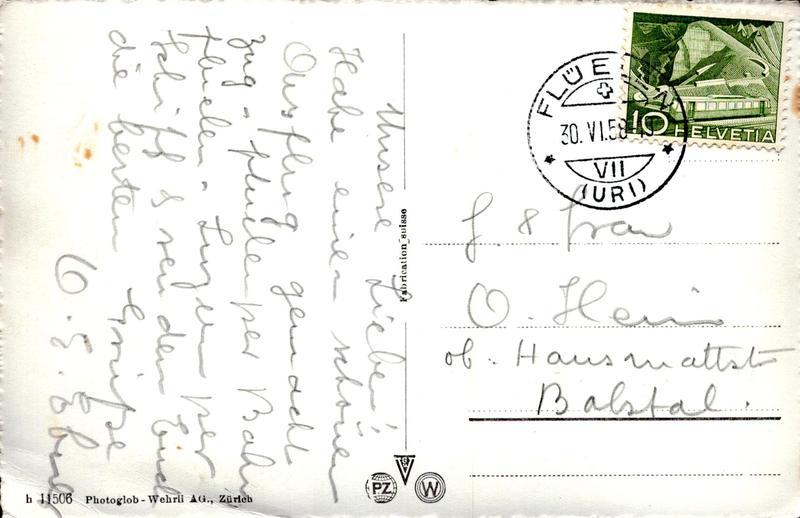 Unsere Lieben!
Habe einen schönen
Ausflug gemacht
Zug - Flüelen per Bahn
Flüelen - Luzern per
Schiff & senden Euch
die besten Grüsse
Fabrication suisse
FLÜELEN
30.VI.58
VII
(URI)
10 HELVETIA
& Frau
O. Heim
ob. Hausmattstr
Balstal.
PZ
W
h 11506 Photoglob-Wehrli AG., Zürich